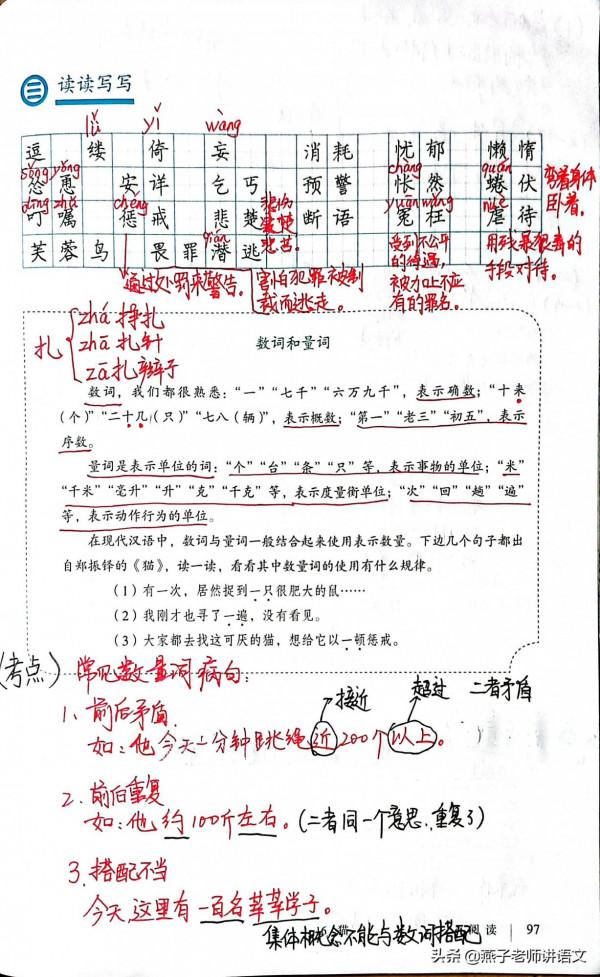 三 读读写写
lǚ yǐ wàng
逗 缕 倚 妄 消 耗 忧 郁 懒 惰
sǒng yǒng chàng quán
怂 恿 安 详 乞 丐 预 警 怅 然 蜷 伏
弯着身体
卧着。
dīng zhǔ chéng yuān wǎng nüè
叮 嘱 惩 戒 悲 楚 断 语 冤 枉 虐 待
悲伤
凄楚
悲苦。
qián
芙 蓉 鸟 畏 罪 潜 逃
通过处罚来警告。
害怕犯罪被制
裁而逃走。
受到不公平
的待遇,
被加上不应
有的罪名。
用残暴狠毒的
手段对待。
扎
zhá 挣扎
zhā 扎针
zā 扎辫子
数词和量词
数词,我们都很熟悉:“一”“七千”“六万九千”,表示确数;“十来
(个)”“二十几(只)”“七八(辆)”,表示概数;“第一”“老三”“初五”,表示
序数。
量词是表示单位的词:“个”“台”“条”“只”等,表示事物的单位;“米”
“千米”“毫升”“升”“克”“千克”等,表示度量衡单位;“次”“回”“趟”“遍”
等,表示动作行为的单位。
在现代汉语中,数词与量词一般结合起来使用表示数量。下边几个句子都出
自郑振铎的《猫》,读一读,看看其中数量词的使用有什么规律。
(1)有一次,居然捉到一只很肥大的鼠……
(2)我刚才也寻了一遍,没有看见。
(3)大家都去找这可厌的猫,想给它以一顿惩戒。
(考点)常见数量词病句:
接近 超过 二者矛盾
1、前后矛盾
如:他今天一分钟跳绳近200个以上。
2、前后重复
如:他约100斤左右。(二者同一个意思,重复了)
3、搭配不当
今天,这里有一百名莘莘学子。
集体概念不能与数词搭配
猫 阅读 97
头条 @燕子老师讲语文